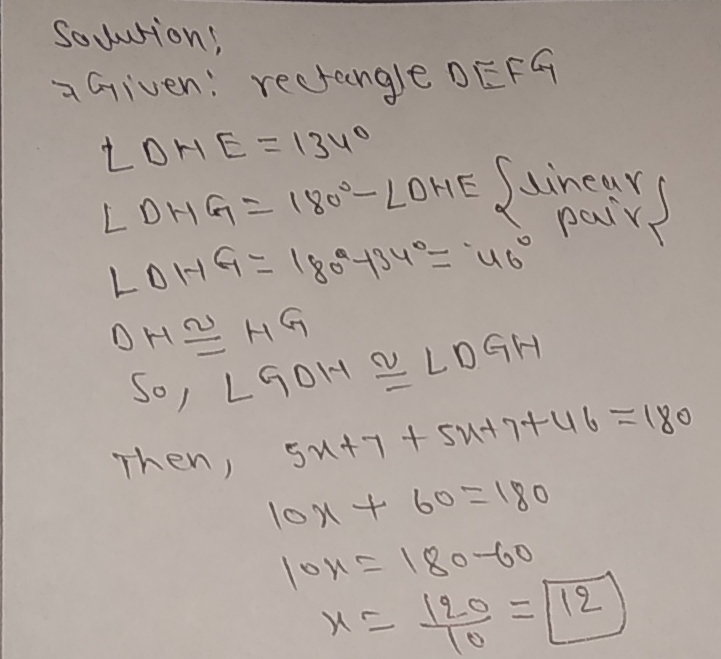 Solution;
→ Given: rectangle DEFG
∠DHE = 134°
∠DHG = 180° - ∠DHE {linear pair}
∠DHG = 180° - 134° = 46°
DH ≅ HG
So, ∠GDH ≅ ∠DGH
Then, 5x+7 + 5x+7+46 = 180
10x + 60 = 180
10x = 180-60
x = 120/10 = 12